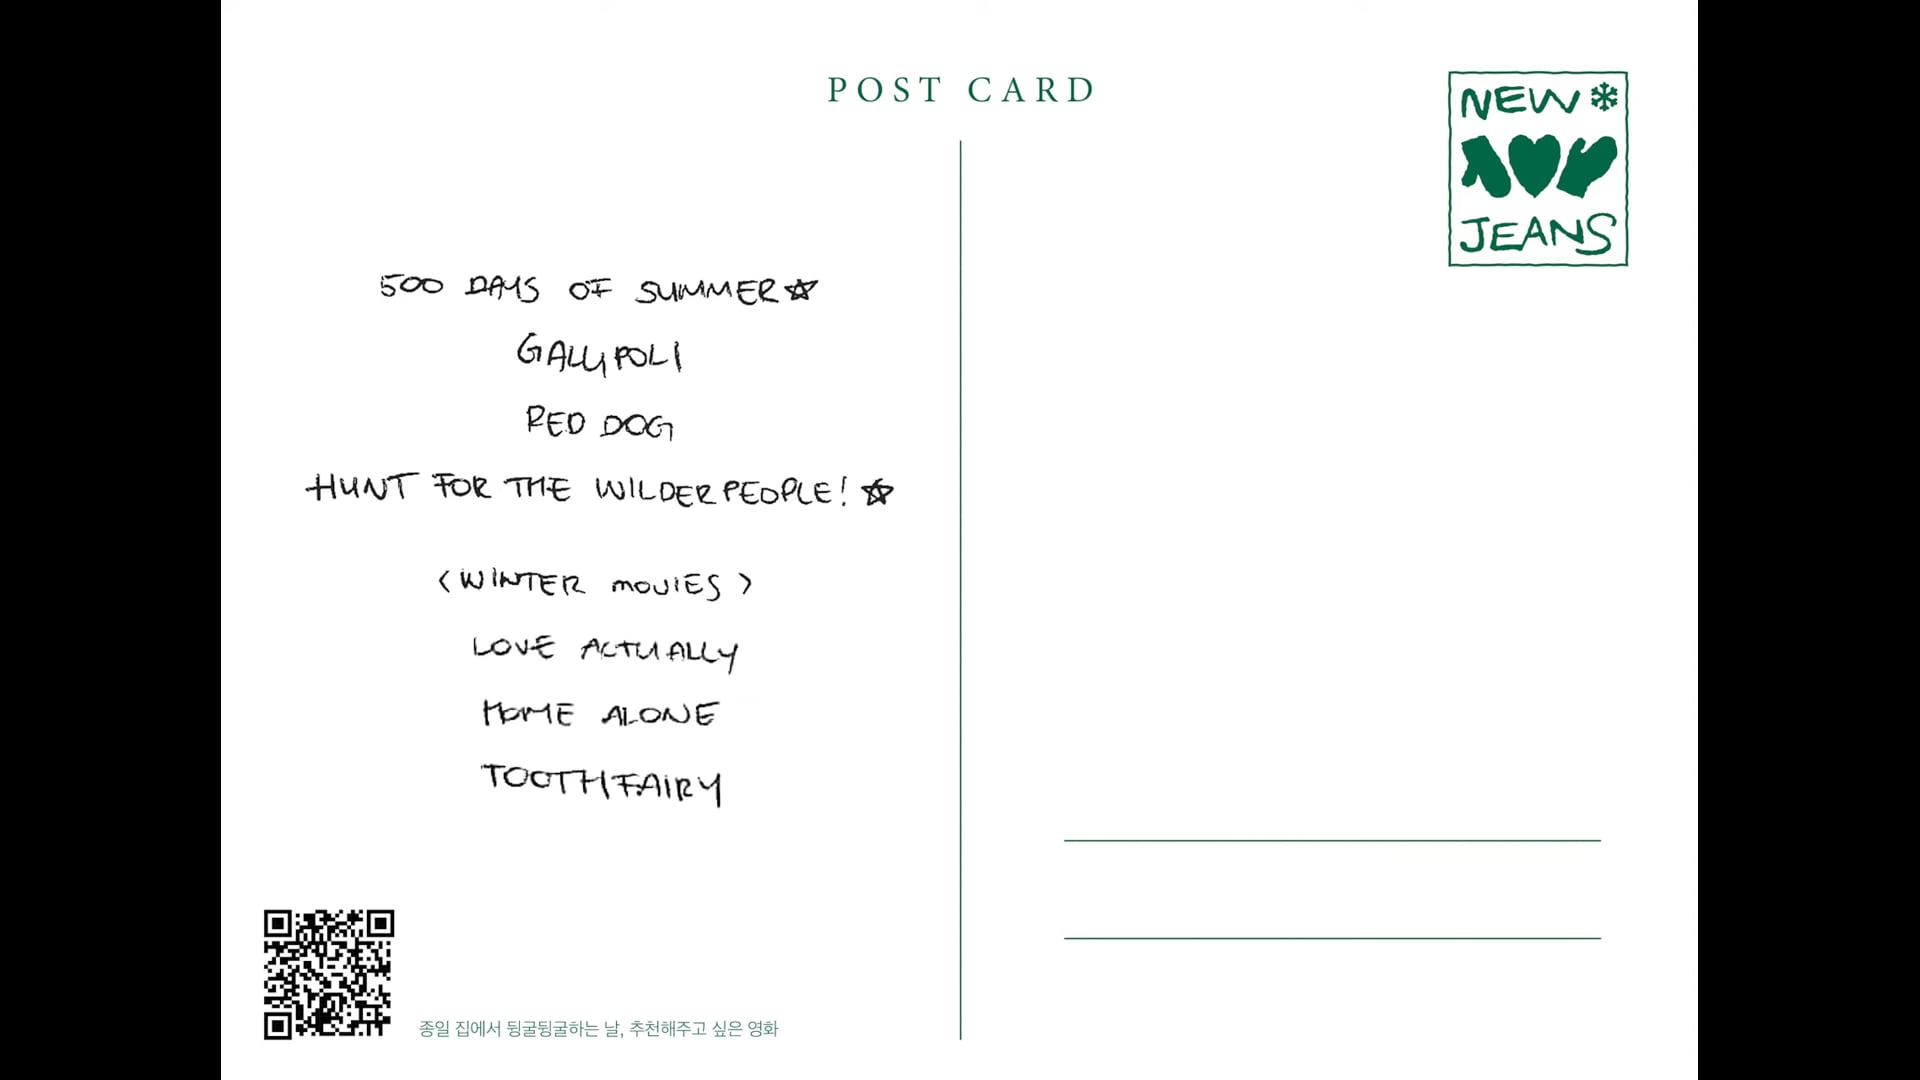 POST CARD
NEW
JEANS
500 DAYS OF SUMMER☆
GALLYPOLI
RED DOG
HUNT FOR THE WILDERPEOPLE! ☆
<WINTER MOVIES>
LOVE ACTUALLY
HOME ALONE
TOOTHFAIRY
종일 집에서 뒹굴뒹굴하는 날, 추천해주고 싶은 영화